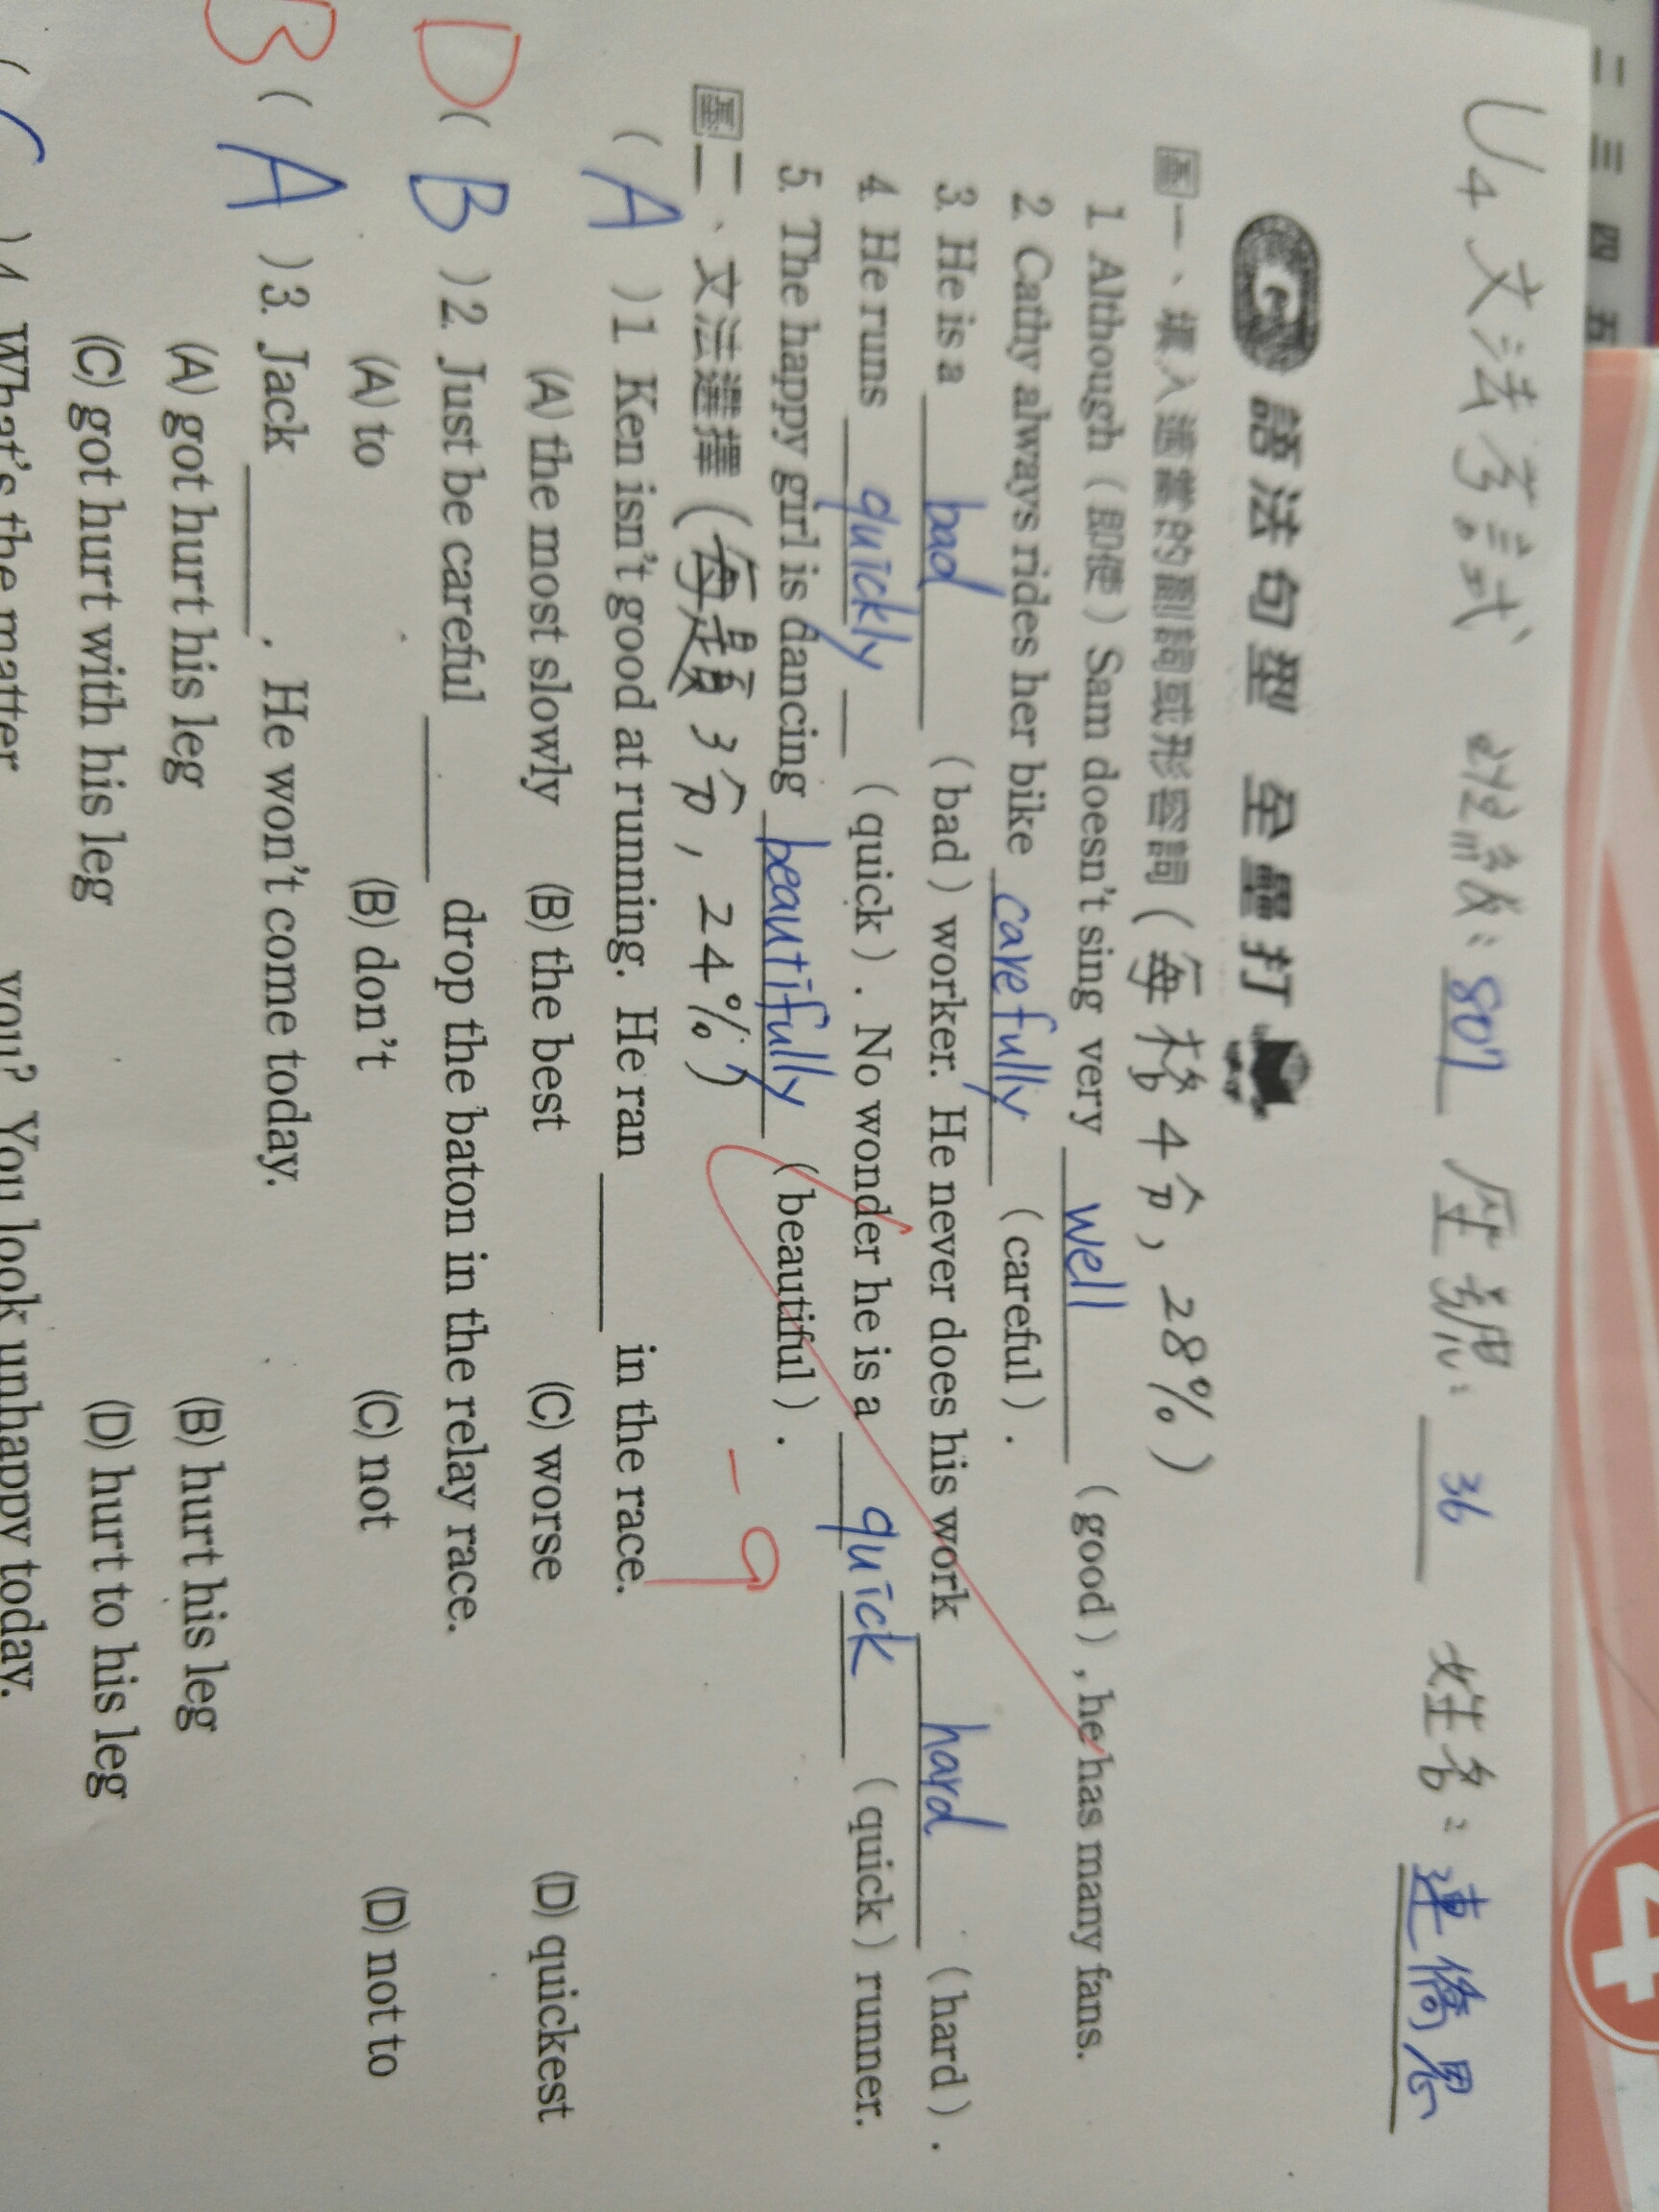 二 三 四 五
4
U4 文法考試 班級：807 座號：36 姓名：連僑恩
語法句型 全壘打
一、填入適當的副詞或形容詞（每格4分，28%）
1. Although（即使）Sam doesn't sing very well （good）, he has many fans.
2. Cathy always rides her bike carefully （careful）.
3. He is a bad （bad）worker. He never does his work hard （hard）.
4. He runs quickly （quick）. No wonder he is a quick （quick）runner.
5. The happy girl is dancing beautifully （beautiful）.
二、文法選擇（每題3分，24%）
-9
（ A ）1. Ken isn't good at running. He ran ____ in the race.
(A) the most slowly (B) the best (C) worse (D) quickest
D（ B ）2. Just be careful ____ drop the baton in the relay race.
(A) to (B) don't (C) not (D) not to
B（ A ）3. Jack ____. He won't come today.
(A) got hurt his leg (B) hurt his leg
(C) got hurt with his leg (D) hurt to his leg
）4. What's the matter you? You look unhappy today.